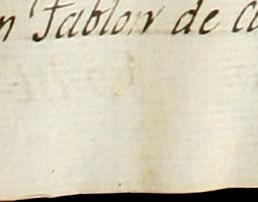 n Tablon de ca